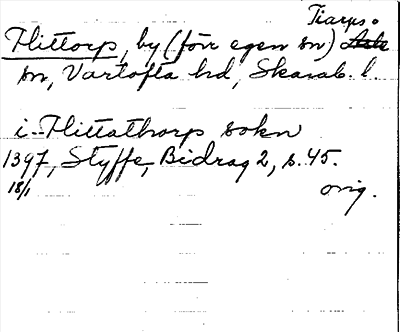 Tiarps
Hittorp, by (förr egen sn) Åsle
sn, Vartofta hd, Skarab. l
i Hittathorps sokn
1397, Styffe, Bidrag 2, s. 45.
18/1 orig.